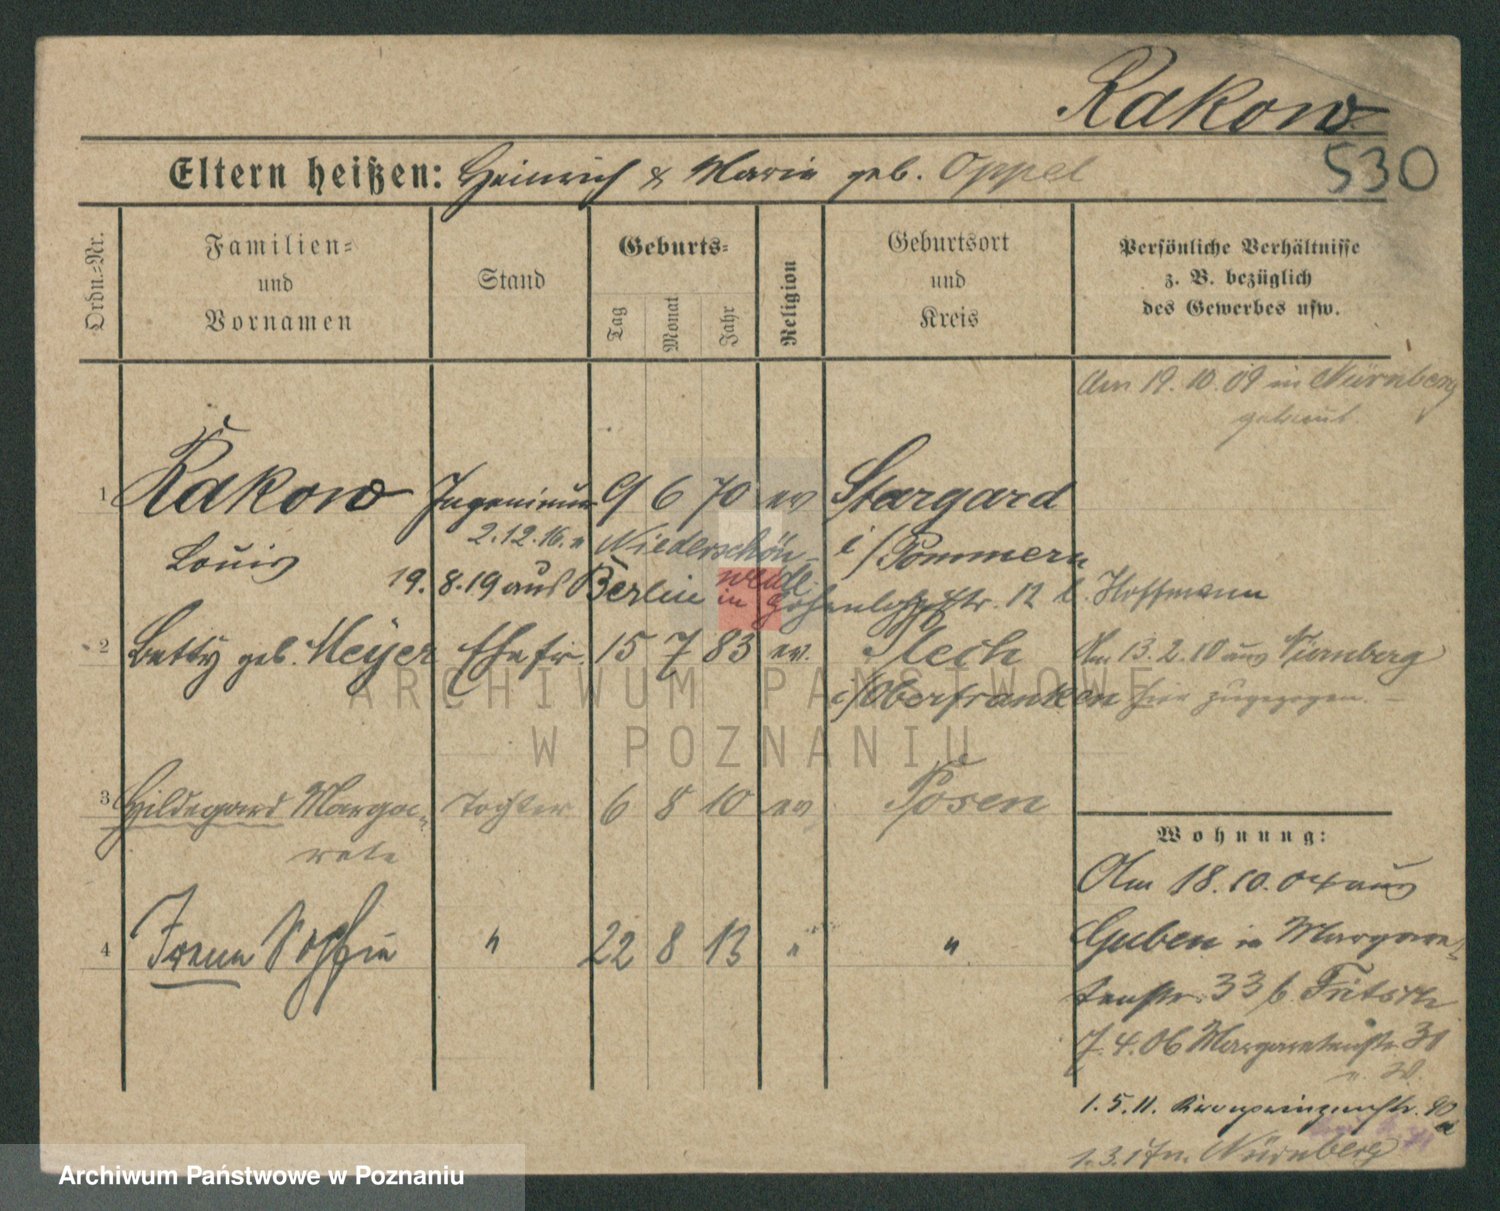 Rakow
530
Eltern heißen: Heinrich & Marie geb. Oppel
Ordn.=Nr.
Familien=
und
Vornamen
Stand
Geburts=
Tag
Monat
Jahr
Religion
Geburtsort
und
Kreis
Persönliche Verhältnisse
z. B. bezüglich
des Gewerbes usw.
Am 19.10.09 in Nürnberg
getraut
1 Rakow Ingenieur 9 6 70 ev Stargard
2.12.16. n Niederschön- i/Pommern
Louis
weide
19.8.19 aus Berlin in Hohenlohestr. 12 b. Hoffmann
2 Betty geb. Meyer Ehefr. 15 7 83 ev. Am 13.2.10 aus Nürnberg
i/Oberfranken hier zugezogen. –
3 Hildegard Marga- Tochter 6 8 10 ev Posen
rete
Wohnung:
Am 18.10.04 aus
4 Irene Sophie " 22 8 13 " "
Guben in Margare-
tenstr. 33 b. Fritsch
7.4.06 Margaretenstr. 31
1.5.11. Kronprinzenstr. 90
1.3.17 n. Nürnberg
ARCHIWUM PAŃSTWOWE
W POZNANIU
Archiwum Państwowe w Poznaniu